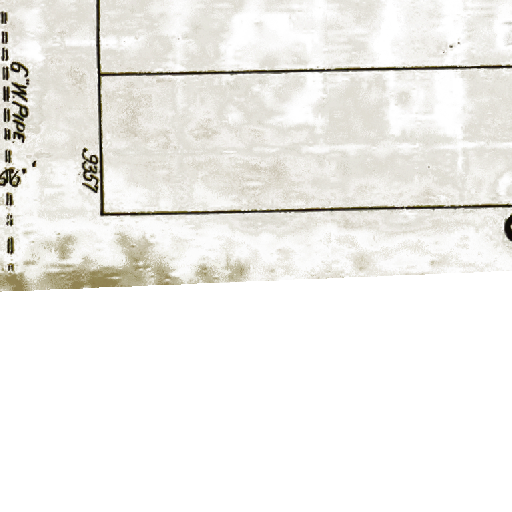 6" W. PIPE
9357